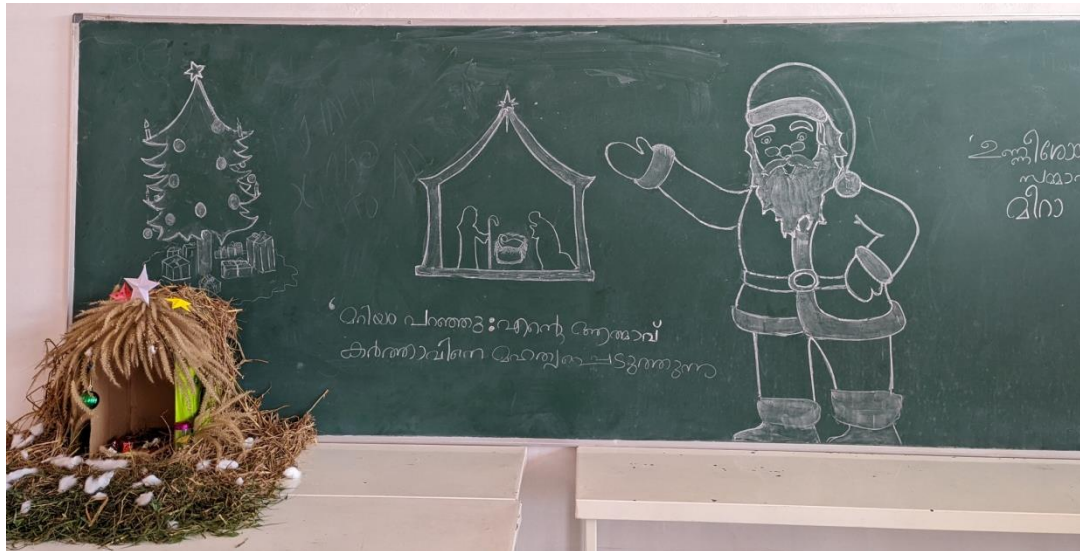 'മറിയം പറഞ്ഞു : എന്റെ ആത്മാവ്
കർത്താവിനെ മഹത്വപ്പെടുത്തുന്നു
'ഉണ്ണീശോ
സമ്മാ
മീറാ